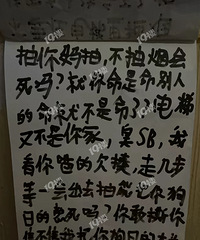 抽你妈抽,不抽烟会
死吗?就你命是命别人
的命就不是命?电梯
又不是你家,臭SB,我
看你的欠揍,走几步
等一当出去抽能让你狗
日的憋死吗?你敢撕你